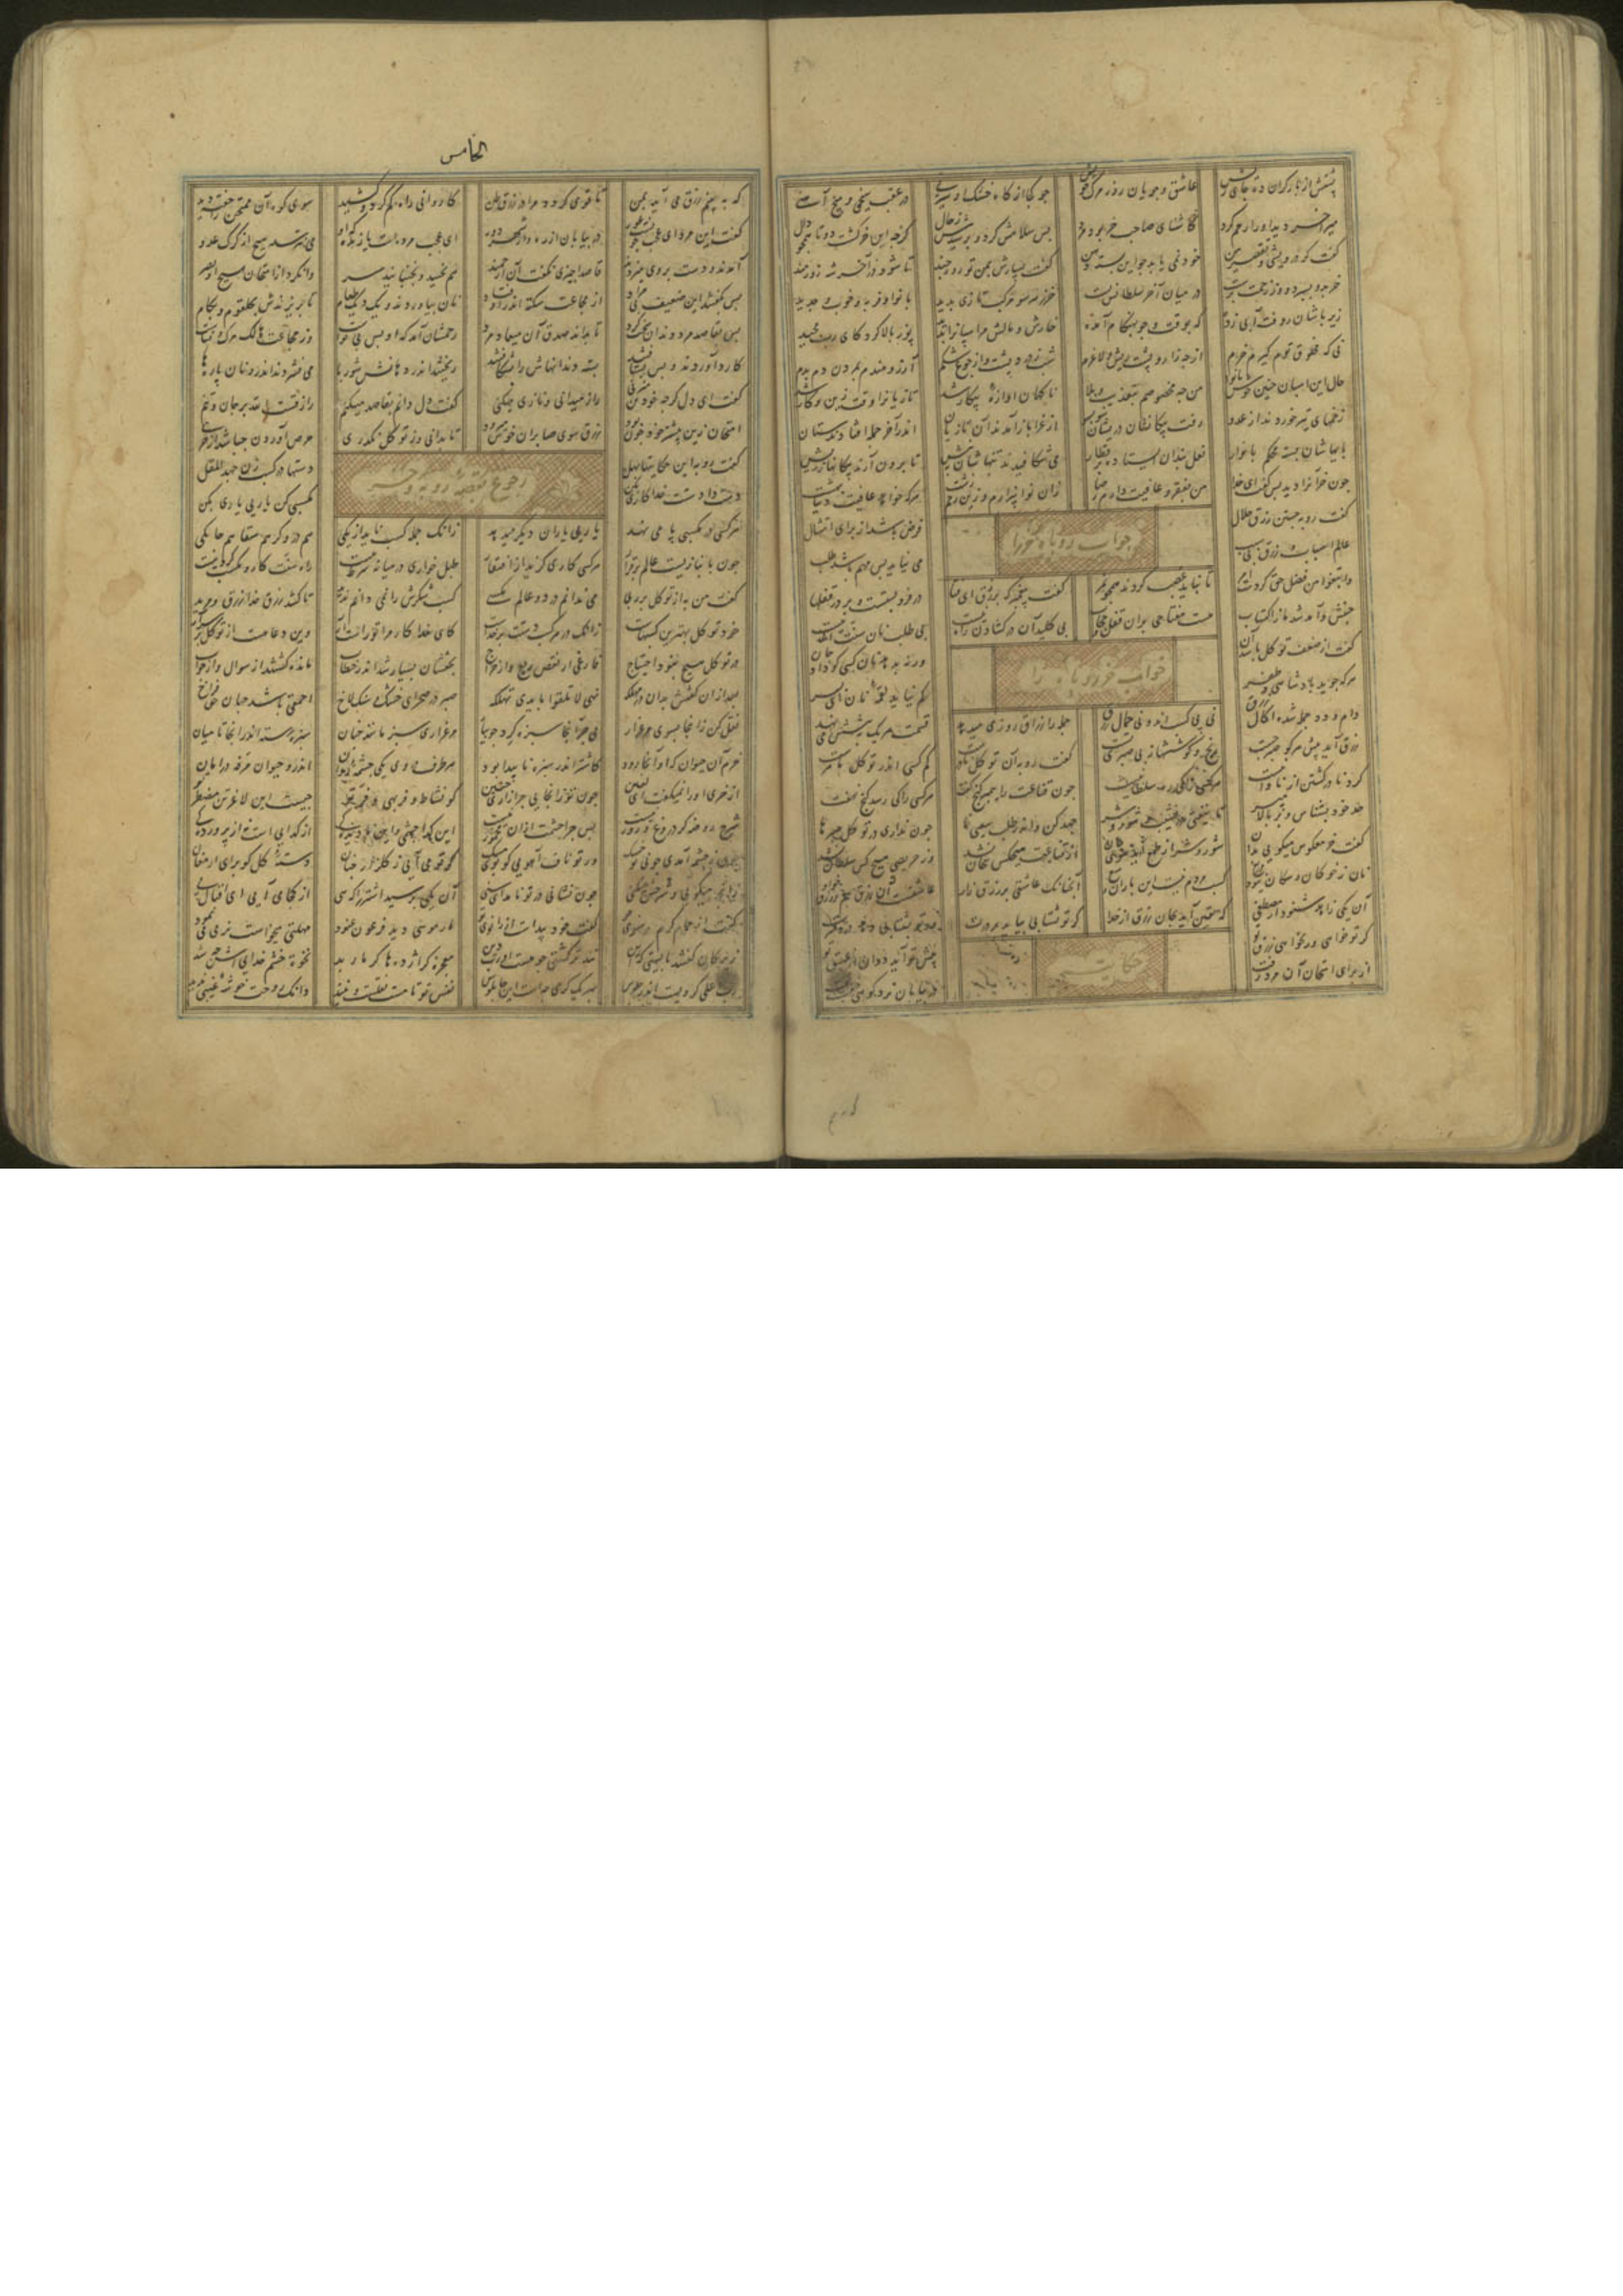 پشتش از بار گران ده جای ریش عاشق و جویان روز مرگ خویش جو کجا از کاه خشک او سیر نی در عقب زخمی و سیخ آهنی
میر آخر دید او را رحم کرد کاشنای صاحب خر بود مرد پس سلامش کرد و پرسیدش ز حال کز چه این خر گشت دوتا همچو دال
گفت کز درویشی و تقصیر من خود نمی یابد جو این بسته دهن گفت بسپارش بمن تو روز چند تا شود در آخر شه زورمند
خر بدو بسپرد و از زحمت برست در میان آخر سلطانش بست خر ز هر سو مرکب تازی بدید با نوا و فربه و خوب و جدید
زیر پاشان روفته آبی زده که بوقت و جو بهنگام آمده خارش و مالش مر اسپانرا بدید پوز بالا کرد کای رب مجید
نی که مخلوق توام گیرم خرم از چه زار و پشت ریش و لاغرم شب ز درد پشت و از جوع شکم آرزومندم بمردن دم بدم
حال این اسپان چنین خوش با نوا من چه مخصوصم بتعذیب و بلا ناگهان آوازه پیکار شد تازیانرا وقت زین و کار شد
زخمهای تیر خوردند از عدو رفت پیکانها دریشان سو بسو از غزا باز آمدند آن تازیان اندر آخر جمله افتاده ستان
پایهاشان بسته محکم با نوار نعلبندان ایستاده بر قطار می شکافیدند تنهاشان بنیش تا برون آرند پیکانها ز ریش
چون خر آنرا دید پس گفت ای خدا من بفقر و عافیت دادم رضا زان نوا بیزارم و زین زخم زشت هر که خواهد عافیت دنیا بهشت
جواب روباه خر را
گفت روبه جستن رزق حلال فرض باشد از برای امتثال
عالم اسباب و رزق بی سبب می نیاید پس مهم باشد طلب
وابتغوا من فضل حق کردست امر تا نباید غصب کردن همچو نمر گفت پیغمبر که بر رزق ای فتا در فرو بستست و بر در قفلها
جنبش و آمد شد ما و اکتساب هست مفتاحی بران قفل و حجاب بی کلید آن در گشادن راه نیست بی طلب نان سنت الله نیست
جواب خر روباه را
گفت از ضعف توکل باشد آن ورنه بدهد نان کسی کو داد جان
هر که جوید پادشاهی و ظفر کم نیاید لقمه نان ای پسر
دام و دد جمله شده اکال رزق نی پی کسب اند و نی حمال رزق جمله را رزاق روزی میدهد قسمت هر یک به پیشش می نهد
رزق آید پیش هر کو صبر جست رنج و کوششها ز بی صبری تست گفت روبه آن توکل نادرست کم کسی اندر توکل ماهرست
گرد نادر گشتن از نادانیست هر کسی را کی ره سلطانیست چون قناعت را پیمبر گنج گفت هر کسی را کی رسد گنج نهفت
حد خود بشناس و بر بالا مپر تا نیفتی در نشیب شور و شر جهد کن واندر طلب سعیی نما چون نداری در توکل صبرها
گفت خر معکوس میگویی بدان شور و شر از طمع آید سوی جان از قناعت هیچکس بیجان نشد وز حریصی هیچ کس سلطان نشد
نان ز خوکان و سگان نبود دریغ کسب مردم نیست این باران و میغ آنچنانک عاشقی بر رزق زار عاشقست آن رزق هم بر رزق خوار
آن یکی زاهد شنود از مصطفی که یقین آید بجان رزق از خدا گر تو نشتابی بیاید بر درت ور تو بشتابی دهد درد سرت
حکایت
گر تو خواهی ور نخواهی رزق تو پیش تو آید دوان از عشق تو
از برای امتحان آن مرد رفت در بیابان نزد کوهی خفت تفت
الخامس
که ببینم رزق می آید بمن تا قوی گردد مرا در رزق ظن کاروانی راه گم کرد و کشید سوی کوه آن ممتحن را خفته دید
گفت این مرد این طرف چونست عور در بیابان از ره و از شهر دور ای عجب مرده است یا زنده که او می نترسد هیچ از گرگ و عدو
آمدند و دست بر وی میزدند قاصدا چیزی نگفت آن ارجمند هم نجنبید و نجنبانید سر وا نکرد از امتحان هیچ او بصر
پس بگفتند این ضعیف بی مراد از مجاعت سکته اندر اوفتاد نان بیاوردند و در دیگی طعام تا بریزندش بحلقوم و بکام
پس بقاصد مرد دندان سخت کرد تا بداند صدق آن میعاد مرد رحمشان آمد که او بس بی نواست وز مجاعت هالک مرگ و فناست
کارد آوردند و بس بشتافتند بسته دندانهاش را بشکافتند ریختند اندر دهانش شوربا می فشردند اندرو نان پارها
گفت ای دل گرچه خود تن میزنی راز میدانی و نازی میکنی گفت دل دانم بقاصد میکنم رازقست الله بر جان و تنم
امتحان زین بیشتر خود چون بود رزق سوی صابران خوش میرود تا بدانی وز توکل نگذری حرص آوردن چه باشد از خری
رجوع بقصه روبه و خر
گفت روبه این حکایتها بهل دستها در کسب زن جهد المقل
دست دادستت خدا کاری بکن مکسبی کن یاری یاری بکن
هر کسی در مکسبی پا می نهد یاری یاران دیگر میدهد زانک جمله کسب ناید از یکی هم دروگر هم سقا هم حایکی
چون بانبازیست عالم برقرار هر کسی کاری گزیند ز افتقار طبل خواری در میانه شرط نیست راه سنت کار و مکسب کردنیست
گفت من به از توکل بر ربی می ندانم در دو عالم مکسبی کسب شکرش را نمی دانم ندید تا کشد رزق خدا رزق و مزید
خود توکل بهترین کسبهاست زانک در هر کسب دستت بر خداست کای خدا کار مرا تو راست آر وین دعا هست از توکل
در توکل هیچ نبود احتیاج فارغی از نقص ریع و از خراج بحثشان بسیار شد اندر خطاب مانده گشتند از سوال و از جواب
بعد ازان گفتش بدان در مملکه نهی لا تلقوا بایدی تهلکه صبر در صحرای خشک و سنگلاخ احمقی باشد جهان حق فراخ
نقل کن زاینجا بسوی مرغزار می چر آنجا سبزه گرد جویبار مرغزاری سبز مانند جنان سبزه رسته اندر آنجا تا میان
خرم آن حیوان که او آنجا رود کاشتر اندر سبزه ناپیدا بود هر طرف در وی یکی چشمه روان اندرو حیوان مرفه در امان
از خری او را نمیگفت ای لعین چون تو زانجایی چرا زاری چنین کو نشاط و فربهی و فر تو چیست این لاغر تن مضطر تو
شرح روضه گر دروغ و زور نیست پس چرا چشمت ازان مخمور نیست این گدا چشمی و این نادیدگی از گدایی است نز
چون ز چشمه آمدی چونی تو خشک ور تو ناف آهویی کو بوی مشک گر تو می آیی ز گلزار جنان دسته گل کو برای ارمغان
زآنچ میگویی و شرحش میکنی چون نشانی در تو نامد ای سنی آن یکی پرسید اشتر را که هی از کجا می آیی ای اقبال پی
گفت از حمام گرم کوی تو گفت خود پیداست از زانوی تو مار موسی دید فرعون عنود مهلتی میخواست نرمی می نمود
زیرکان گفتند بایستی که این تندتر گشتی چو هست او رب دین معجزه گر اژدها گر مار بد نخوت و خشم خدایی اش چه شد
رب اعلی گر ویست اندر جلوس بهر یک کرمی چیست این چاپلوس نفس تو تا مست نقلست و نبید دانک روحت خوشه غیبی ندید